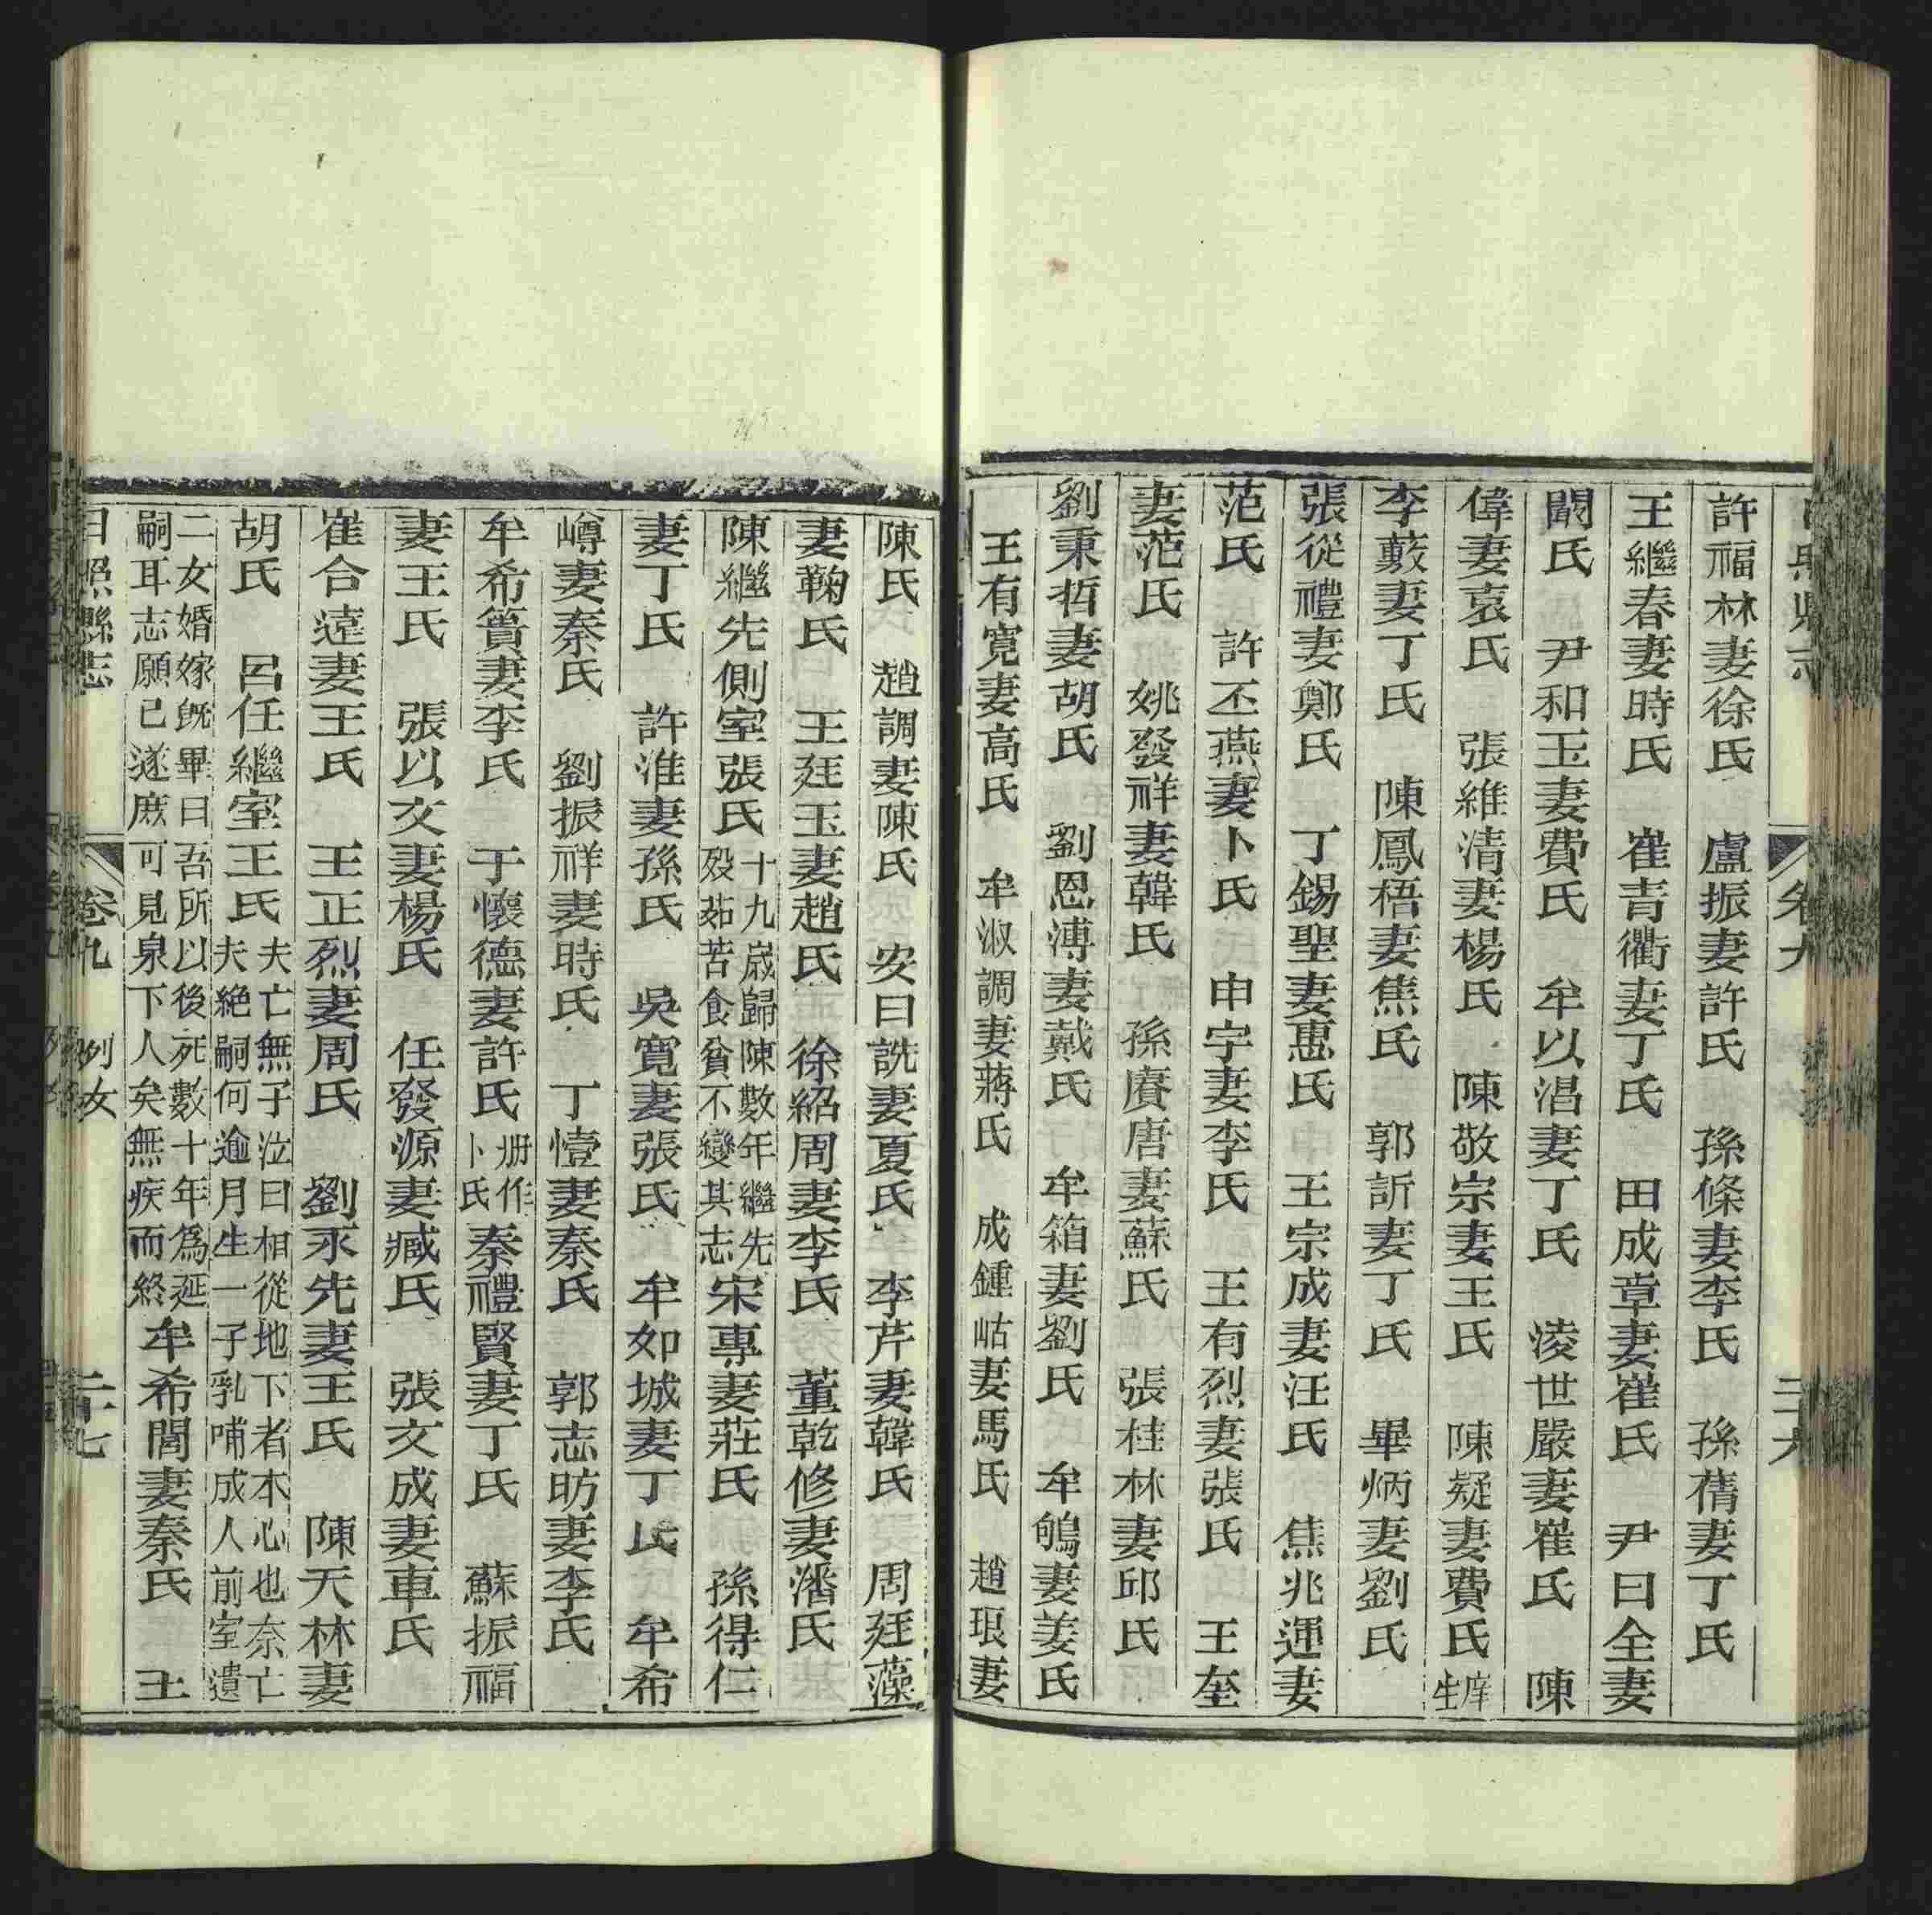 許福林妻徐氏　盧振妻許氏　孫條妻李氏　孫蒨妻丁氏
王繼春妻時氏　崔青衢妻丁氏　田成章妻崔氏　尹曰全妻
闞氏　尹和玉妻費氏　牟以淐妻丁氏　淩世嚴妻崔氏　陳
偉妻袁氏　張維清妻楊氏　陳敬宗妻王氏　陳疑妻費氏庠生
李藙妻丁氏　陳鳳梧妻焦氏　郭訢妻丁氏　畢炳妻劉氏
張從禮妻鄭氏　丁錫聖妻惠氏　王宗成妻汪氏　焦兆運妻
范氏　許丕燕妻卜氏　申宇妻李氏　王有烈妻張氏　王奎
妻范氏　姚發祥妻韓氏　孫賡唐妻蘇氏　張桂林妻邱氏
劉秉哲妻胡氏　劉恩溥妻戴氏　牟箱妻劉氏　牟鳹妻姜氏
王有寬妻高氏　牟淑調妻蔣氏　成鍾岵妻馬氏　趙琅妻
陳氏　趙調妻陳氏　安曰詵妻夏氏　李芹妻韓氏　周廷藻
妻鞠氏　王廷玉妻趙氏　徐紹周妻李氏　董乾修妻潘氏
陳繼先側室張氏十九歲歸陳數年繼先歿茹苦食貧不變其志　宋專妻莊氏　孫得仁
妻丁氏　許淮妻孫氏　吳寬妻張氏　牟如城妻丁氏　牟希
嶟妻秦氏　劉振祥妻時氏　丁懛妻秦氏　郭志昉妻李氏
牟希簣妻李氏　于懷德妻許氏册作卜氏　秦禮賢妻丁氏　蘇振福
妻王氏　張以文妻楊氏　任發源妻臧氏　張文成妻車氏
崔合遠妻王氏　王正烈妻周氏　劉永先妻王氏　陳天林妻
胡氏　呂任繼室王氏夫亡無子泣曰相從地下者本心也奈亡夫絕嗣何逾月生一子乳哺成人前室遺
二女婚嫁既畢曰吾所以後死數十年爲延嗣耳志願已遂庶可見泉下人矣無疾而終　牟希閻妻秦氏　王
日照縣志　卷九　列女　二十七